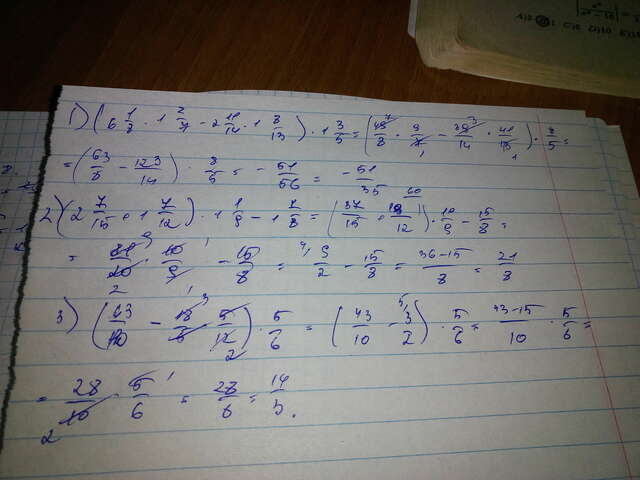 1) (6 1/8 · 1 2/7 - 2 11/14 · 1 8/13) · 1 3/5 = (49/8 · 9/7 - 39/14 · 41/13) · 8/5 =
= (63/8 - 123/14) · 8/5 = - 51/56 = - 51/35
2) (2 7/15 + 1 7/12) · 1 1/9 - 1 7/8 = (37/15 + 19/12) · 10/9 - 15/8 =
= 81/20 · 10/9 - 15/8 = 9/2 - 15/8 = 36-15/8 = 21/8
3) (43/10 - 18/5 · 5/12) · 5/6 = (43/10 - 3/2) · 5/6 = 43-15/10 · 5/6 =
= 28/10 · 5/6 = 28/6 = 14/3.